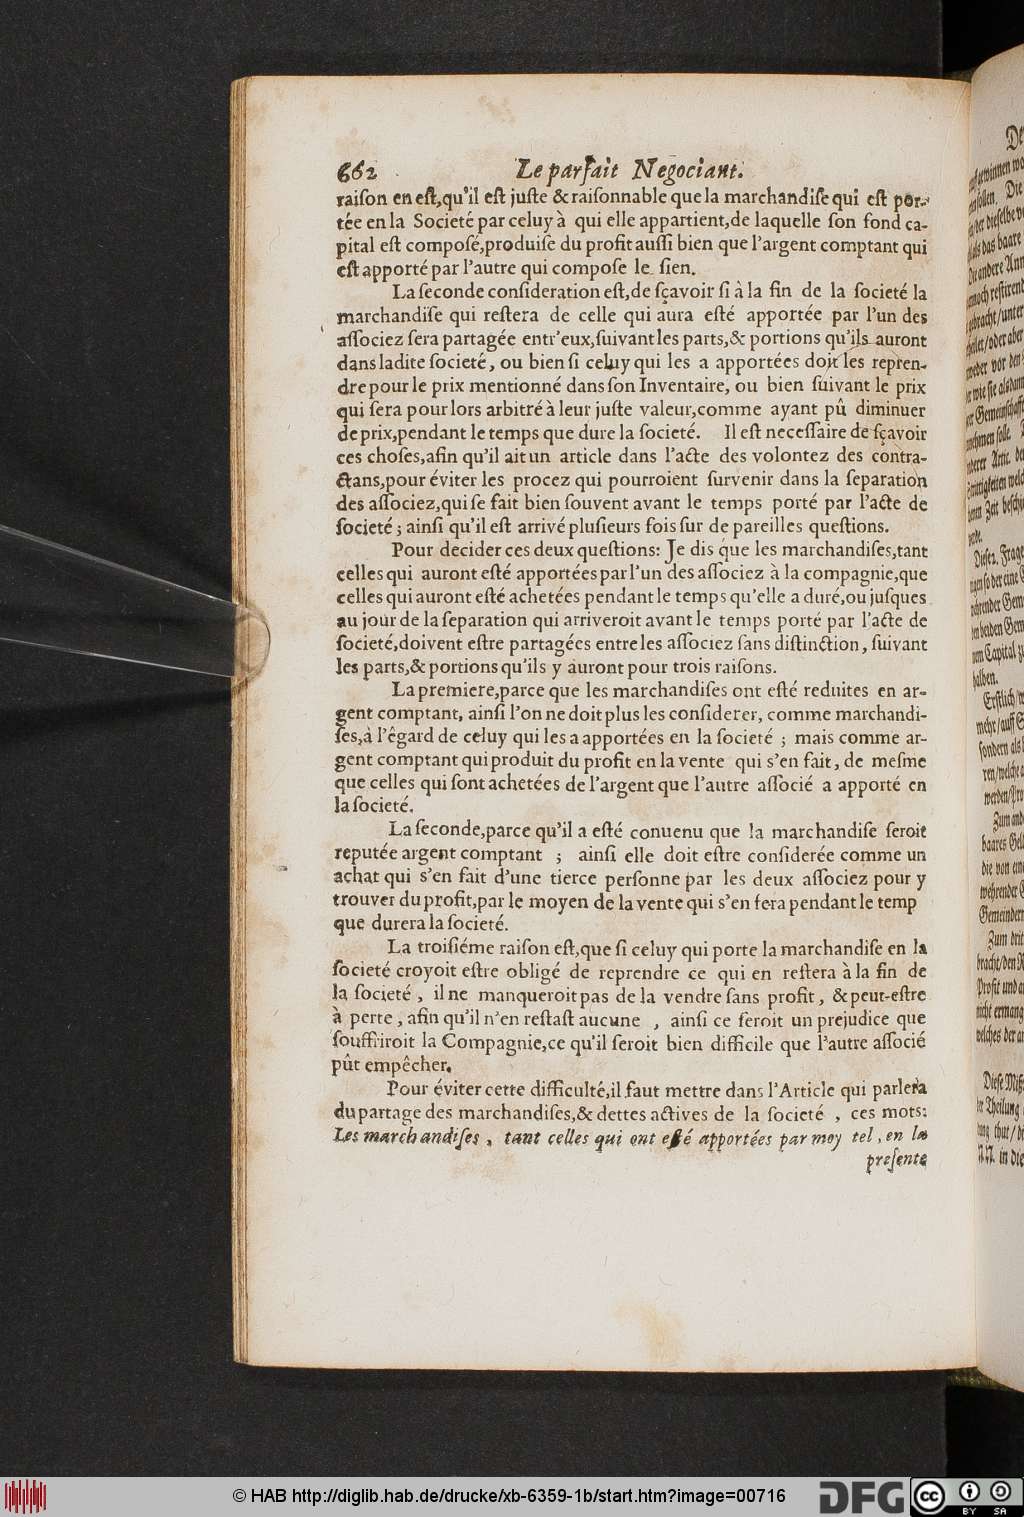 662 Le parfait Negociant.
raiſon en eſt,qu'il eſt juſte & raiſonnable que la marchandiſe qui eſt por-
tée en la Societé par celuy à qui elle appartient,de laquelle ſon fond ca-
pital eſt compoſé,produiſe du profit auſſi bien que l'argent comptant qui
eſt apporté par l'autre qui compoſe le ſien.
La ſeconde conſideration eſt,de ſçavoir ſi à la fin de la ſocieté la
marchandiſe qui reſtera de celle qui aura eſté apportée par l'un des
aſſociez ſera partagée entr'eux,ſuivant les parts,& portions qu'ils auront
dans ladite ſocieté, ou bien ſi celuy qui les a apportées doit les repren-
dre pour le prix mentionné dans ſon Inventaire, ou bien ſuivant le prix
qui ſera pour lors arbitré à leur juſte valeur,comme ayant pû diminuer
de prix,pendant le temps que dure la ſocieté. Il eſt neceſſaire de ſçavoir
ces choſes,afin qu'il ait un article dans l'acte des volontez des contra-
ctans,pour éviter les procez qui pourroient ſurvenir dans la ſeparation
des aſſociez,qui ſe fait bien ſouvent avant le temps porté par l'acte de
ſocieté ; ainſi qu'il eſt arrivé pluſieurs fois ſur de pareilles queſtions.
Pour decider ces deux queſtions: Je dis que les marchandiſes,tant
celles qui auront eſté apportées par l'un des aſſociez à la compagnie,que
celles qui auront eſté achetées pendant le temps qu'elle a duré,ou juſques
au jour de la ſeparation qui arriveroit avant le temps porté par l'acte de
ſocieté,doivent eſtre partagées entre les aſſociez ſans diſtinction, ſuivant
les parts,& portions qu'ils y auront pour trois raiſons.
La premiere,parce que les marchandiſes ont eſté reduites en ar-
gent comptant, ainſi l'on ne doit plus les conſiderer, comme marchandi-
ſes,à l'égard de celuy qui les a apportées en la ſocieté ; mais comme ar-
gent comptant qui produit du profit en la vente qui s'en fait, de meſme
que celles qui ſont achetées de l'argent que l'autre aſſocié a apporté en
la ſocieté.
La ſeconde,parce qu'il a eſté conuenu que la marchandiſe ſeroit
reputée argent comptant ; ainſi elle doit eſtre conſiderée comme un
achat qui s'en fait d'une tierce perſonne par les deux aſſociez pour y
trouver du profit,par le moyen de la vente qui s'en fera pendant le temp
que durera la ſocieté.
La troiſiéme raiſon eſt,que ſi celuy qui porte la marchandiſe en la
ſocieté croyoit eſtre obligé de reprendre ce qui en reſtera à la fin de
la ſocieté , il ne manqueroit pas de la vendre ſans profit, & peut-eſtre
à perte, afin qu'il n'en reſtaſt aucune , ainſi ce ſeroit un prejudice que
ſouffriroit la Compagnie,ce qu'il ſeroit bien difficile que l'autre aſſocié
pût empêcher.
Pour éviter cette difficulté,il faut mettre dans l'Article qui parlera
du partage des marchandiſes,& dettes actives de la ſocieté , ces mots:
Les marchandiſes, tant celles qui ont eſté apportées par moy tel, en la
preſente
© HAB http://diglib.hab.de/drucke/xb-6359-1b/start.htm?image=00716
DFG
cc BY SA